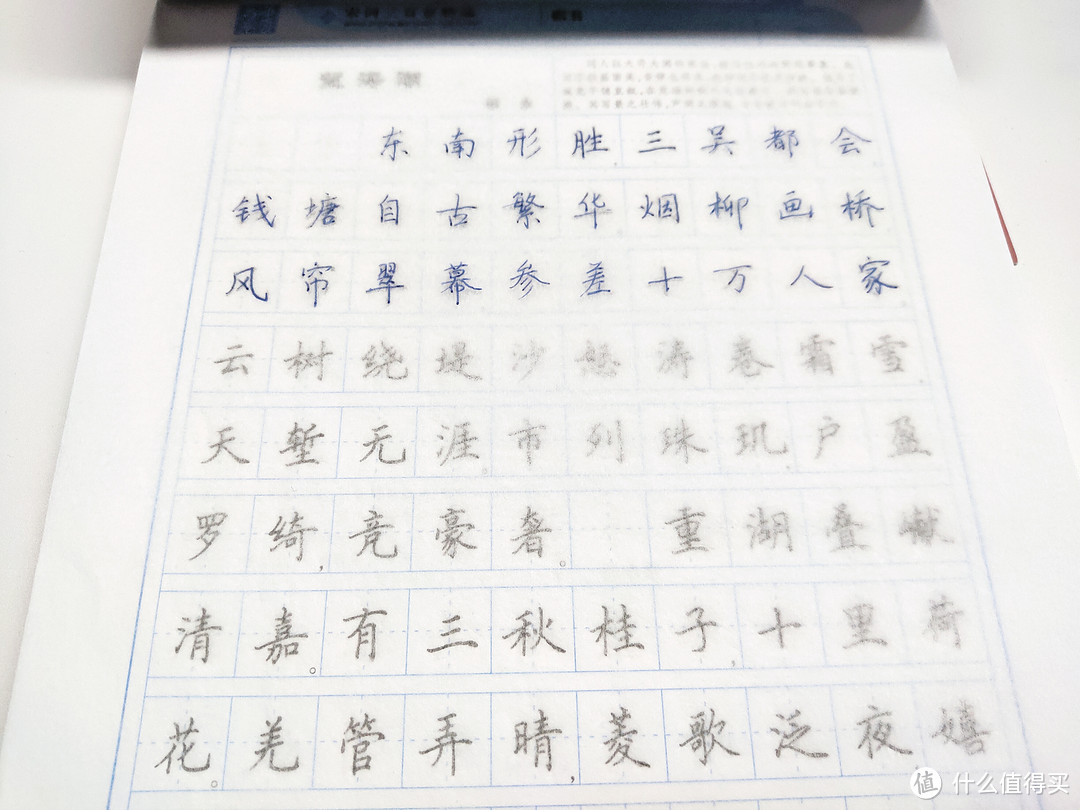 望海潮
东南形胜三吴都会
钱塘自古繁华烟柳画桥
风帘翠幕参差十万人家
云树绕堤沙怒涛卷霜雪
天堑无涯。市列珠玑户盈
罗绮,竞豪奢。重湖叠巘
清嘉。有三秋桂子,十里荷
花。羌管弄晴,菱歌泛夜嬉
值 什么值得买